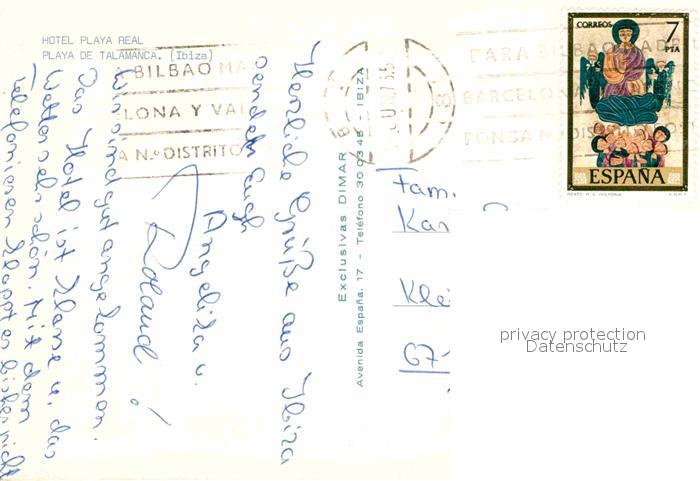 HOTEL PLAYA REAL
PLAYA DE TALAMANCA. (Ibiza)
BILBAO MA
LONA Y VAL
A N.º DISTRITO
PARA BILBAO MADR
BARCELONA Y VAL
PONGA N.º DISTRITO
CORREOS
7
PTA
ESPAÑA
Herzliche Grüße aus Ibiza
sendet Euch
Angelika u.
Roland!
Wir sind gut angekommen.
Das Hotel ist Klasse u. das
Wetter sehr schön. Mit dem
Telefonieren klappt es bisher nicht
Exclusivas DIMAR
Avenida España, 17 - Teléfono 30 03 45 - IBIZA
Fam.
Kar
Kle
67
privacy protection
Datenschutz